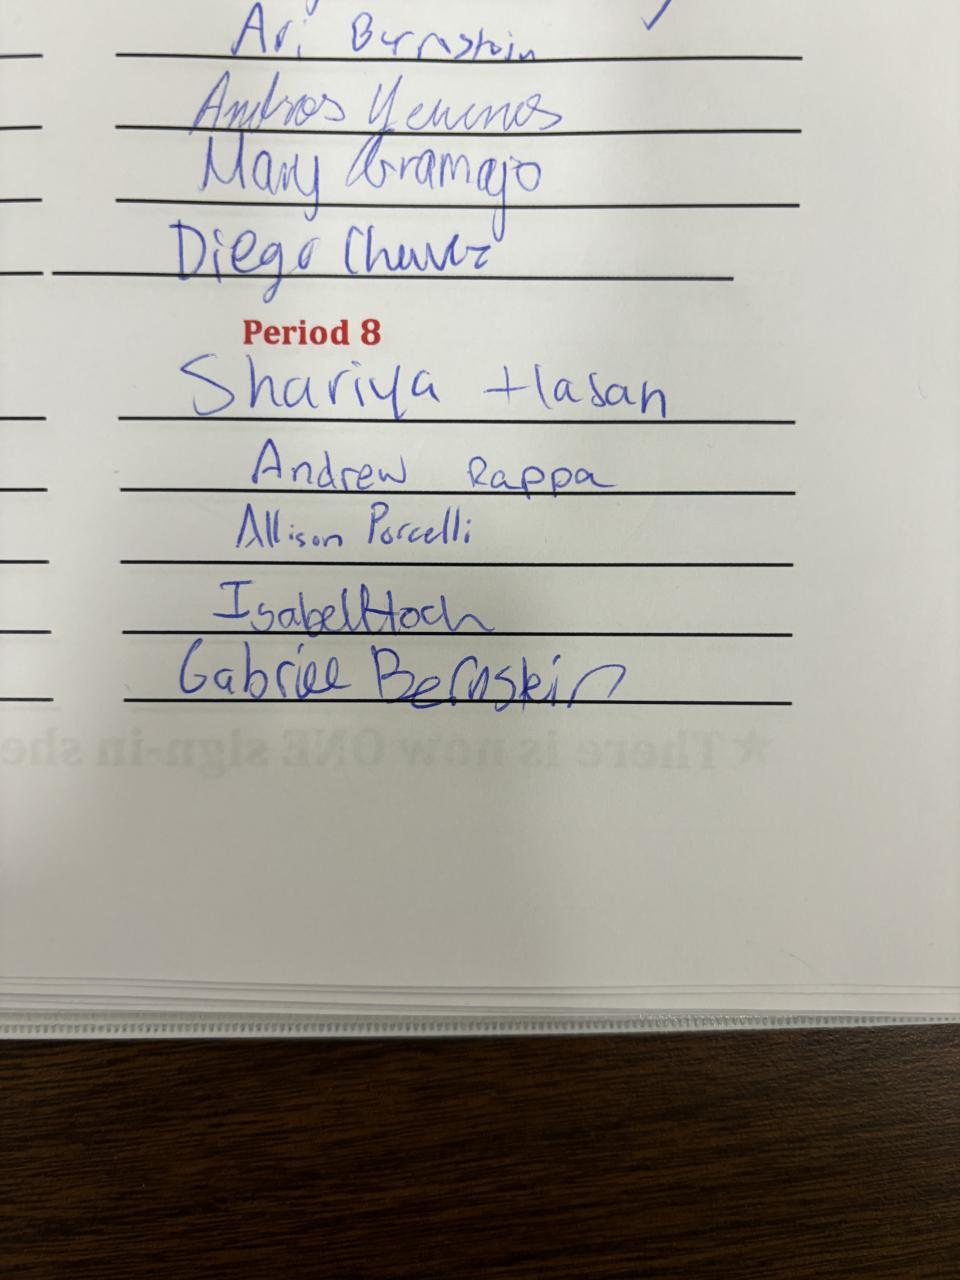 Ari Bernstein
Andros
Mary Gramajo
Diego
Period 8
Shariya Hasan
Andrew Rappa
Allison Porcelli
Isabel Hoch
Gabriel Bernskin
★There is now ONE sign-in she